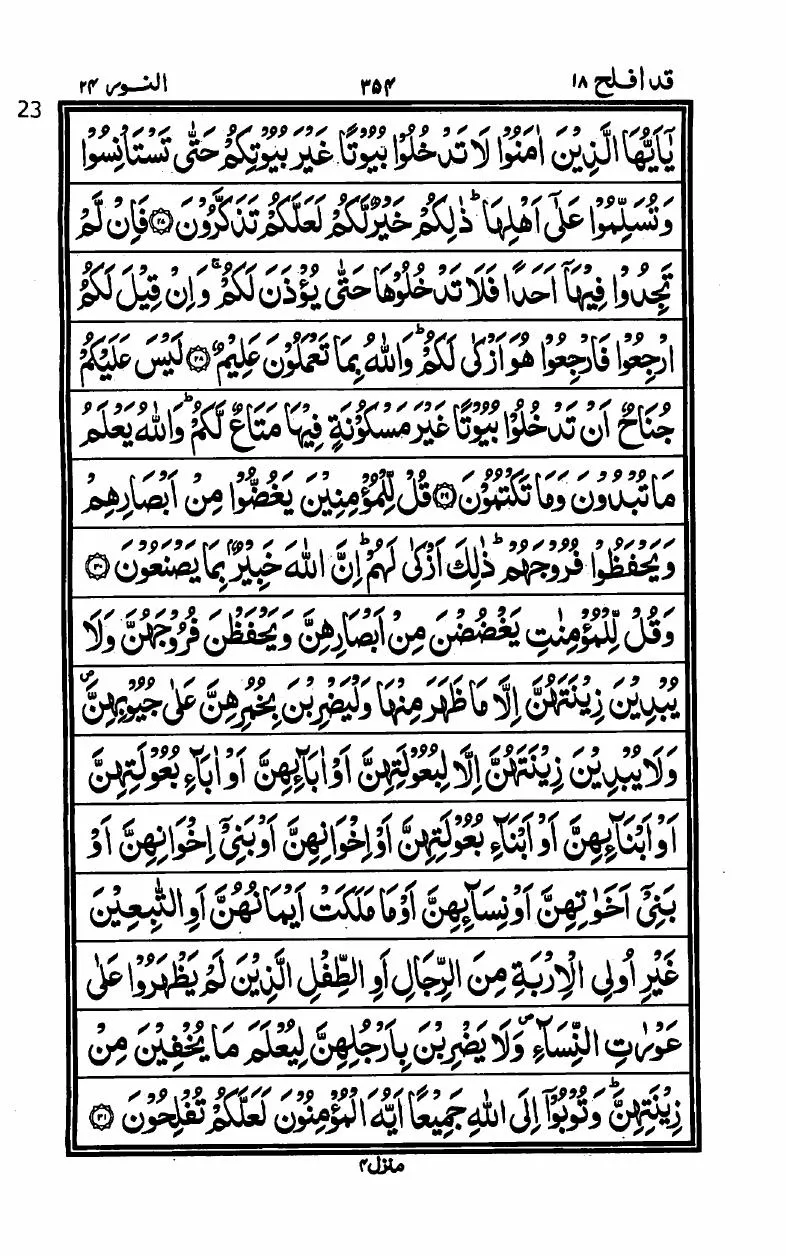 قد افلح ١٨ ٣٥٤ النور ٢٤
23
يٰۤاَيُّهَا الَّذِيْنَ اٰمَنُوْا لَا تَدْخُلُوْا بُيُوْتًا غَيْرَ بُيُوْتِكُمْ حَتّٰى تَسْتَاْنِسُوْا
وَتُسَلِّمُوْا عَلٰۤى اَهْلِهَا ؕ ذٰلِكُمْ خَيْرٌ لَّكُمْ لَعَلَّكُمْ تَذَكَّرُوْنَ ۝۲۷ فَاِنْ لَّمْ
تَجِدُوْا فِيْهَاۤ اَحَدًا فَلَا تَدْخُلُوْهَا حَتّٰى يُؤْذَنَ لَكُمْ ۚ وَاِنْ قِيْلَ لَكُمُ
ارْجِعُوْا فَارْجِعُوْا هُوَ اَزْكٰى لَكُمْ ؕ وَاللّٰهُ بِمَا تَعْمَلُوْنَ عَلِيْمٌ ۝۲۸ لَيْسَ عَلَيْكُمْ
جُنَاحٌ اَنْ تَدْخُلُوْا بُيُوْتًا غَيْرَ مَسْكُوْنَةٍ فِيْهَا مَتَاعٌ لَّكُمْ ؕ وَاللّٰهُ يَعْلَمُ
مَا تُبْدُوْنَ وَمَا تَكْتُمُوْنَ ۝۲۹ قُلْ لِّلْمُؤْمِنِيْنَ يَغُضُّوْا مِنْ اَبْصَارِهِمْ
وَيَحْفَظُوْا فُرُوْجَهُمْ ؕ ذٰلِكَ اَزْكٰى لَهُمْ ؕ اِنَّ اللّٰهَ خَبِيْرٌۢ بِمَا يَصْنَعُوْنَ ۝۳۰
وَقُلْ لِّلْمُؤْمِنٰتِ يَغْضُضْنَ مِنْ اَبْصَارِهِنَّ وَيَحْفَظْنَ فُرُوْجَهُنَّ وَلَا
يُبْدِيْنَ زِيْنَتَهُنَّ اِلَّا مَا ظَهَرَ مِنْهَا وَلْيَضْرِبْنَ بِخُمُرِهِنَّ عَلٰى جُيُوْبِهِنَّ ۪
وَلَا يُبْدِيْنَ زِيْنَتَهُنَّ اِلَّا لِبُعُوْلَتِهِنَّ اَوْ اٰبَآئِهِنَّ اَوْ اٰبَآءِ بُعُوْلَتِهِنَّ
اَوْ اَبْنَآئِهِنَّ اَوْ اَبْنَآءِ بُعُوْلَتِهِنَّ اَوْ اِخْوَانِهِنَّ اَوْ بَنِيْۤ اِخْوَانِهِنَّ اَوْ
بَنِيْۤ اَخَوٰتِهِنَّ اَوْ نِسَآئِهِنَّ اَوْ مَا مَلَكَتْ اَيْمَانُهُنَّ اَوِ التّٰبِعِيْنَ
غَيْرِ اُولِى الْاِرْبَةِ مِنَ الرِّجَالِ اَوِ الطِّفْلِ الَّذِيْنَ لَمْ يَظْهَرُوْا عَلٰى
عَوْرٰتِ النِّسَآءِ ۪ وَلَا يَضْرِبْنَ بِاَرْجُلِهِنَّ لِيُعْلَمَ مَا يُخْفِيْنَ مِنْ
زِيْنَتِهِنَّ ؕ وَتُوْبُوْۤا اِلَى اللّٰهِ جَمِيْعًا اَيُّهَ الْمُؤْمِنُوْنَ لَعَلَّكُمْ تُفْلِحُوْنَ ۝۳۱
منزل ۴